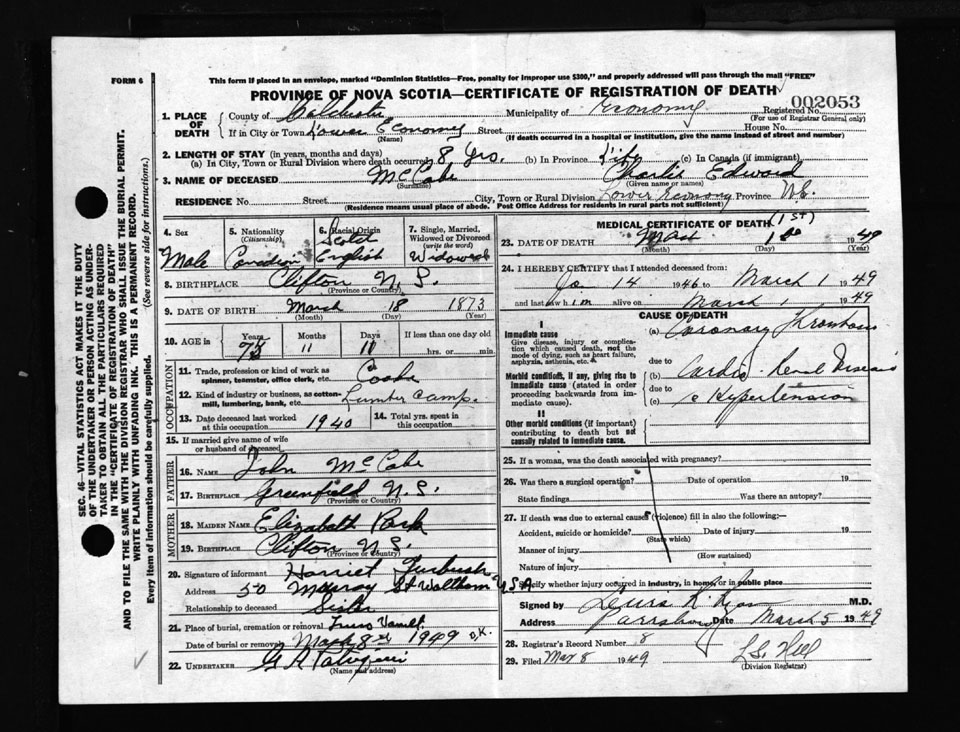 FORM 6
This form if placed in an envelope, marked "Dominion Statistics—Free, penalty for improper use $300," and properly addressed will pass through the mail "FREE"
PROVINCE OF NOVA SCOTIA—CERTIFICATE OF REGISTRATION OF DEATH
002053
1. PLACE OF DEATH
County of Colchester Municipality of Economy Registered No.
(For use of Registrar General only)
If in City or Town Lower Economy Street House No.
(Name) (If death occurred in a hospital or institution, give the name instead of street and number)
2. LENGTH OF STAY (in years, months and days)
(a) In City, Town or Rural Division where death occurred 8 Yrs. (b) In Province Life (c) In Canada (if immigrant)
3. NAME OF DECEASED McCabe Charlie Edward
(Surname) (Given name or names)
RESIDENCE No. Street City, Town or Rural Division Lower Economy Province N.S.
(Residence means usual place of abode. Post Office Address for residents in rural parts not sufficient)
4. Sex
Male
5. Nationality
(Citizenship)
Canadian
6. Racial Origin
English
7. Single, Married, Widowed or Divorced
(write the word)
Widowed
8. BIRTHPLACE Clifton N.S.
(Province or Country)
9. DATE OF BIRTH March 18 1873
(Month) (Day) (Year)
10. AGE in
Years Months Days If less than one day old
11 hrs. or min.
OCCUPATION
11. Trade, profession or kind of work as
spinner, teamster, office clerk, etc.
12. Kind of industry or business, as cotton-
mill, lumbering, bank, etc. Lumber Camp.
13. Date deceased last worked
at this occupation 1940
14. Total yrs. spent in
this occupation
15. If married give name of wife
or husband of deceased
FATHER
16. NAME John McCabe
17. BIRTHPLACE Greenfield N.S.
(Province or Country)
MOTHER
18. MAIDEN NAME Elizabeth Park
19. BIRTHPLACE Clifton N.S.
(Province or Country)
20. Signature of informant Harriet Furbush
Address 50 Murray St Waltham USA
Relationship to deceased Sister
21. Place of burial, cremation or removal Truro
Date of burial or removal March 8 1949 O.K.
22. UNDERTAKER
(Name and address)
MEDICAL CERTIFICATE OF DEATH
(1st)
23. DATE OF DEATH 1949
(Month) (Day) (Year)
24. I HEREBY CERTIFY that I attended deceased from:
Jan 14 1946 to March 1 1949
and last saw him alive on March 1 1949
CAUSE OF DEATH
I
Immediate cause
Give disease, injury or complica-
tion which caused death, not the
mode of dying, such as heart failure,
asphyxia, asthenia, etc.
(a) Coronary Thrombosis
due to
Morbid conditions, if any, giving rise to
immediate cause (stated in order
proceeding backwards from im-
mediate cause).
(b) Cardio-Renal Disease
due to
(c) c Hypertension
II
Other morbid conditions (if important)
contributing to death but not
causally related to immediate cause.
25. If a woman, was the death associated with pregnancy?
26. Was there a surgical operation? Date of operation 19
State findings Was there an autopsy?
27. If death was due to external causes (violence) fill in also the following:—
Accident, suicide or homicide? Date of injury 19
(State which)
Manner of injury
(How sustained)
Nature of injury
Specify whether injury occurred in industry, in home, or in public place
Signed by M.D.
Address Parrsboro Date March 5 1949
28. Registrar's Record Number 8
29. Filed Mar 8 1949 L.S. Hill
(Division Registrar)
SEC. 46—VITAL STATISTICS ACT MAKES IT THE DUTY
OF THE UNDERTAKER OR PERSON ACTING AS UNDER-
TAKER TO OBTAIN ALL THE PARTICULARS REQUIRED
IN THE "CERTIFICATE OF REGISTRATION OF DEATH"
AND TO FILE THE SAME WITH THE DIVISION REGISTRAR WHO SHALL ISSUE THE BURIAL PERMIT.
WRITE PLAINLY WITH UNFADING INK. THIS IS A PERMANENT RECORD.
Every item of Information should be carefully supplied. (See reverse side for instructions.)